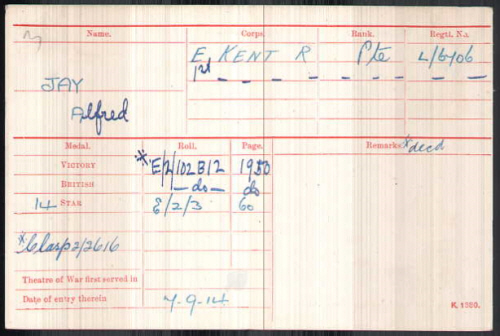 Name. Corps. Rank. Regtl. No.
E. KENT R Pte L/6406
JAY
Alfred
Medal. Roll. Page. Remarks
*decd
VICTORY *E/1/102B12 1950
BRITISH do do
14 STAR E/2/3 60
*Clasp 2/2616
Theatre of War first served in
Date of entry therein 7-9-14
K. 1380.